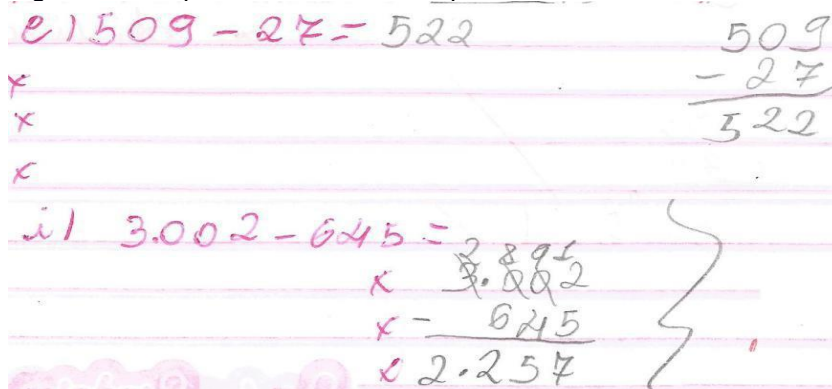 e) 509 - 27 = 522
509
- 27
522
x
x
x
i) 3.002 - 645 =
2 8 9 1
x 3.002
x - 645
x 2.257